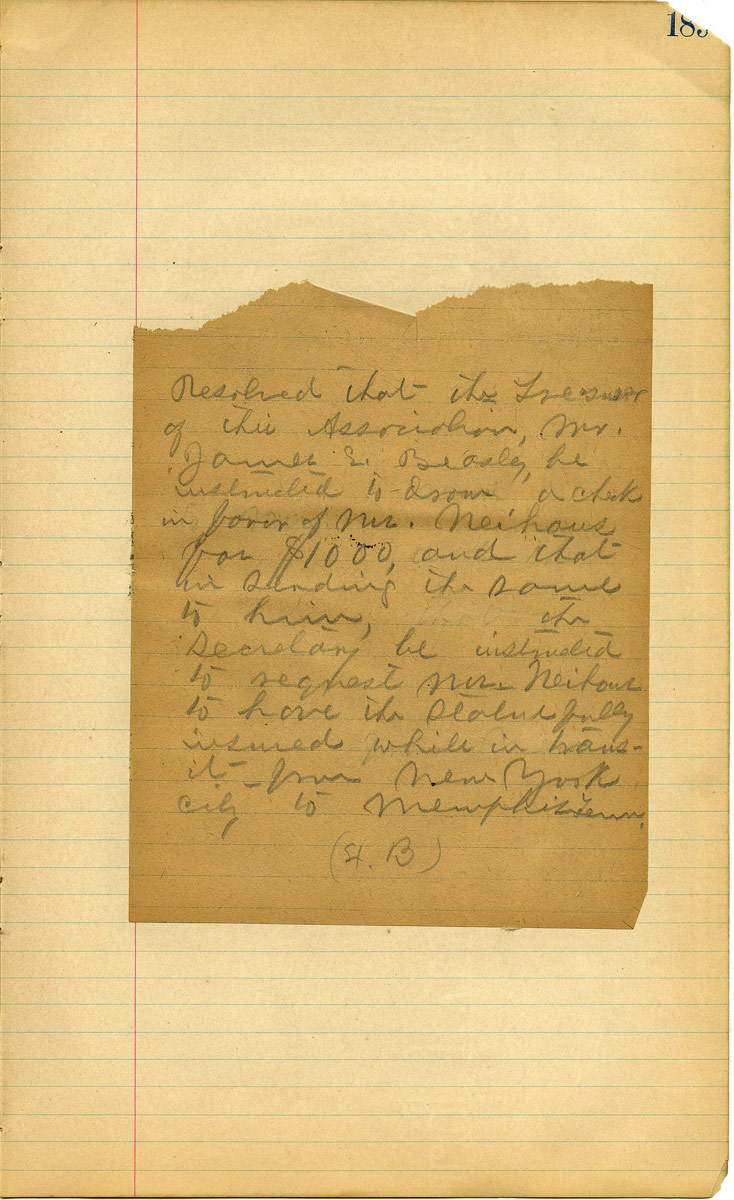 185
Resolved that the Tresurer
of this Association, Mr.
James E. Beasley, be
instructed to draw a check
in favor of Mr. Neihaus
for $1000, and that
in sending the same
to him, the
Secretary be instructed
to request Mr. Neihaus
to have the statue fully
insured while in trans-
it from New York
city to Memphis Tenn.
(H. B)